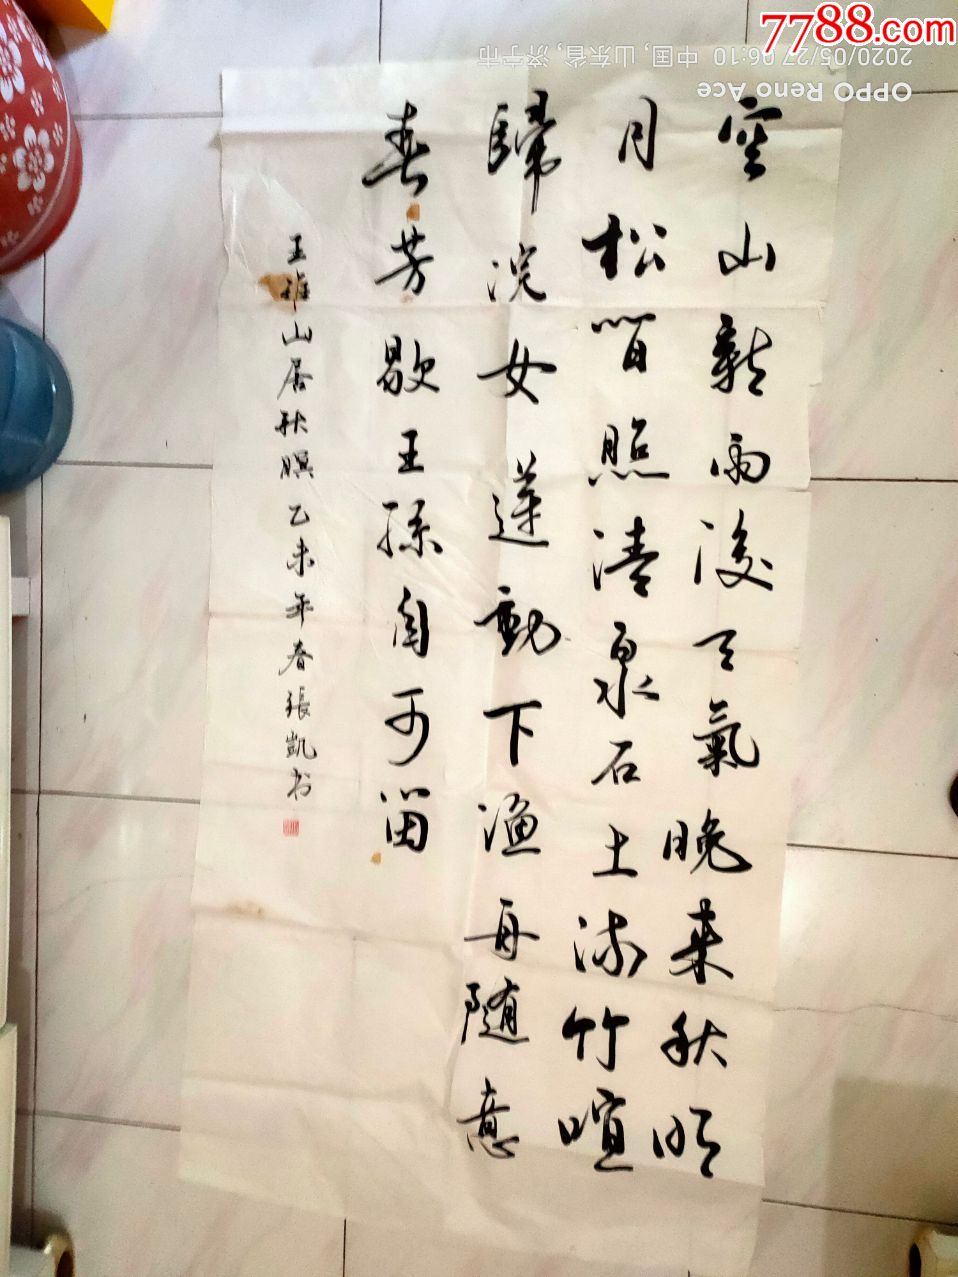 7788.com
OPPO Reno Ace
2020/05/27 06:10 中国, 山东省, 济宁市
空山新雨後天氣晚来秋明
月松間照清泉石上流竹喧
歸浣女莲動下渔舟随意
春芳歇王孫自可留
王維山居秋暝乙未年春張凱书